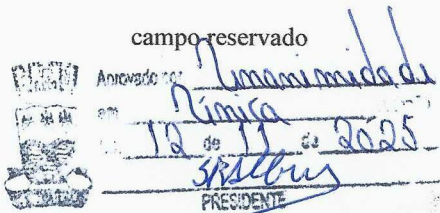 campo reservado
Aprovado por Unanimidade
em Única
12 de 11 de 2025
PRESIDENTE